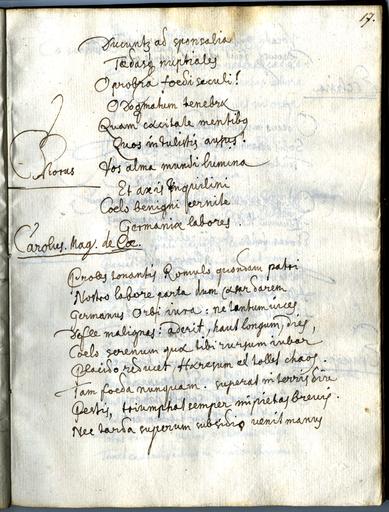 17.
Ducunt ad sponsalia
Tædasq nuptiales
O probra fœdi sæculi!
O dogmatum tenebræ
Quam cæcitate mentibq
Quos intulistis ausus!
Chorus
Vos alma mundi lumina
Et axis inquilini
Cœlo benigni cernite
Germaniæ labores.
Carolus. Mag. de Cœ.
Proles tonantis Romulo quondam patri
Nostro labore parta dum darem
Germanus Orbi iura: ne tantum
malignas: aderit, haud longum, dies,
Cœlo serenum quæ tibi rursum iubar
Placido reducet Hæresum et tollet chaos.
Tam fœda nunquam superat in terris diu
Pestis, triumphat semper impietas brevis.
Nec tarda superum subsidio venit manus